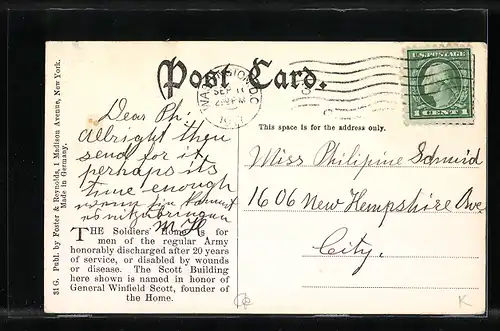 Post Card.
WASHINGTON, D.C.
SEP 11
U.S. POSTAGE
1 CENT 1
This space is for the address only.
Dear Ph.
Allright then
send for it
perhaps its
time enough
wenn Du kannst
M H
Miss Philipine Schmid
1606 New Hampshire Ave.
City.
THE Soldiers' Home is for
men of the regular Army
honorably discharged after 20 years
of service, or disabled by wounds
or disease. The Scott Building
here shown is named in honor of
General Winfield Scott, founder of
the Home.
31 G. Publ. by Foster & Reynolds, 1 Madison Avenue, New York.
Made in Germany.
K